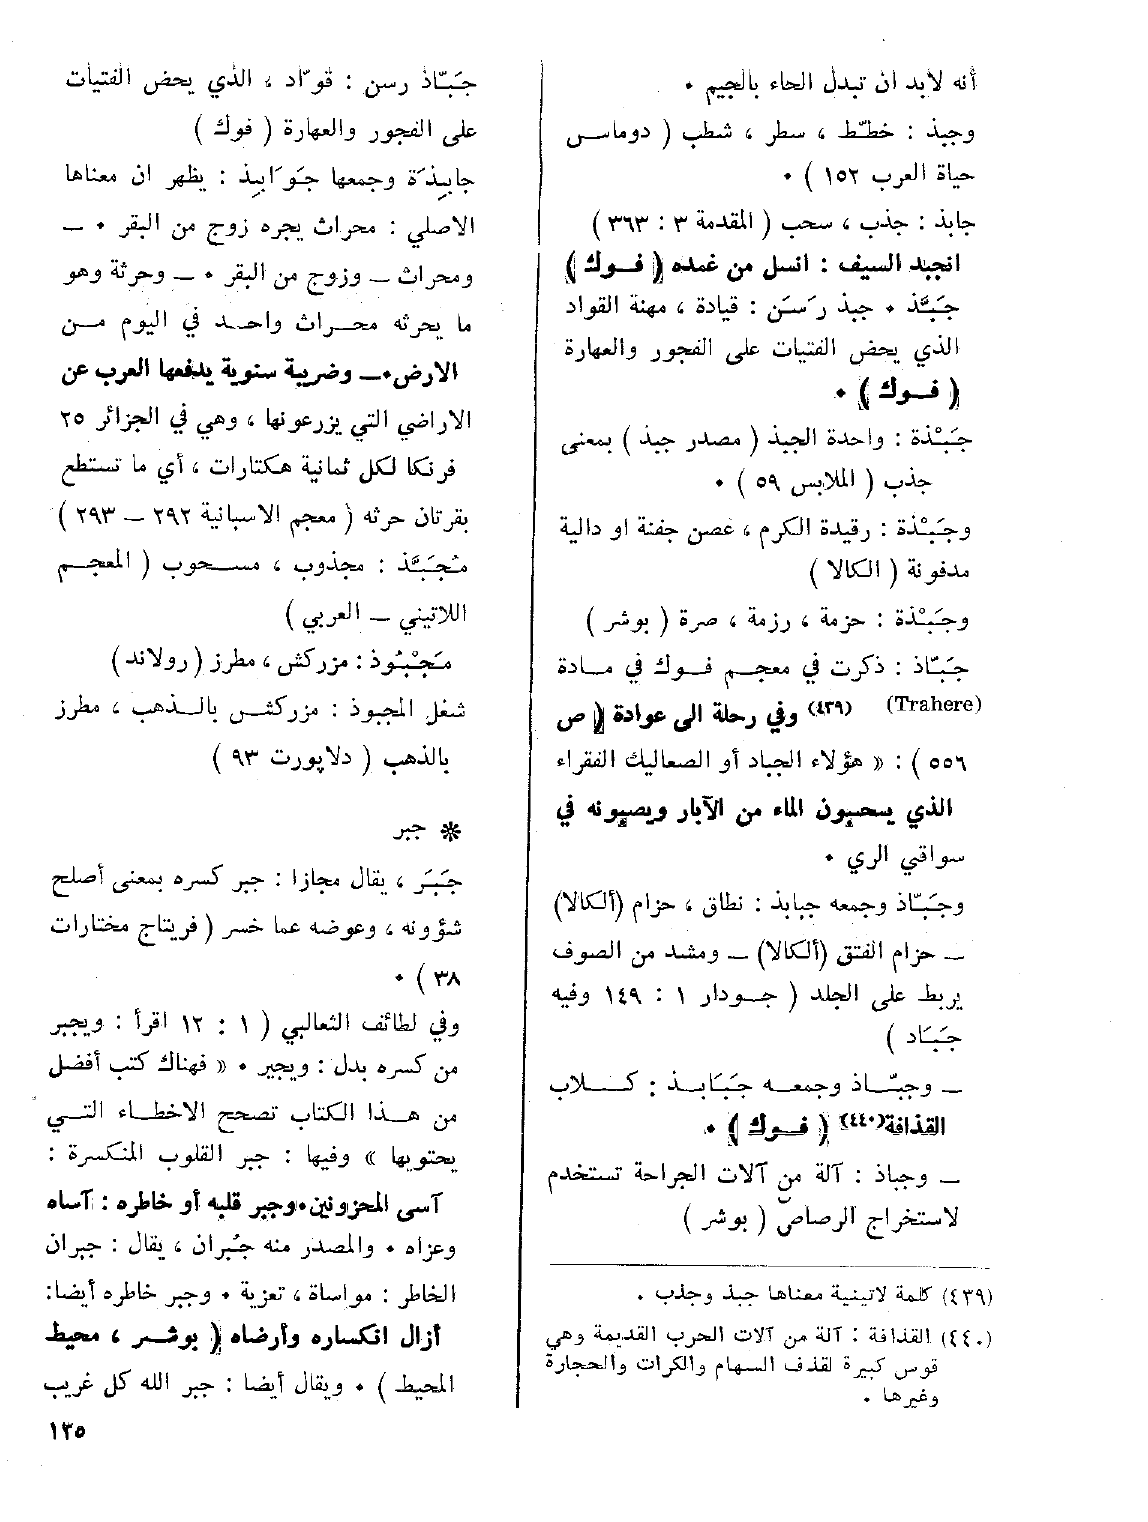 أنه لابد ان تبدل الحاء بالجيم •
وجبذ : خطّط ، سطر ، شطب ( دوماس
حياة العرب ١٥٢ ) •
جابذ : جذب ، سحب ( المقدمة ٣ : ٣٦٣ )
انجبد السيف : انسل من غمده ( فوك )
جَبَّذ • جبذ رَسَن : قيادة ، مهنة القواد
الذي يحض الفتيات على الفجور والعهارة
( فوك ) •
جَبْذة : واحدة الجبذ ( مصدر جبذ ) بمعنى
جذب ( الملابس ٥٩ ) •
وجَبْذة : رقيدة الكرم ، غصن جفنة او دالية
مدفونة ( الكالا )
وجَبْذة : حزمة ، رزمة ، صرة ( بوشر )
جَبّاذ : ذكرت في معجم فوك في مادة
(Trahere) (٤٣٩) وفي رحلة الى عوادة ( ص
٥٥٦ ) : « هؤلاء الجباد أو الصعاليك الفقراء
الذي يسحبون الماء من الآبار ويصبونه في
سواقي الري •
وجَبّاذ وجمعه جبابذ : نطاق ، حزام (ألكالا)
ــ حزام الفتق (ألكالا) ــ ومشد من الصوف
يربط على الجلد ( جودار ١ : ١٤٩ وفيه
جَبَاد )
ــ وجبّاذ وجمعه جَبَابذ : كلاب
القذافة(٤٤٠) ( فوك ) •
ــ وجباذ : آلة من آلات الجراحة تستخدم
لاستخراج الرصاص ( بوشر )
(٤٣٩) كلمة لاتينية معناها جبذ وجذب .
(٤٤٠) القذافة : آلة من آلات الحرب القديمة وهي
قوس كبيرة لقذف السهام والكرات والحجارة
وغيرها .
جَبّاذ رسن : قوّاد ، الذي يحض الفتيات
على الفجور والعهارة ( فوك )
جابِذَة وجمعها جَوَابِذ : يظهر ان معناها
الاصلي : محراث يجره زوج من البقر • ــ
ومحراث ــ وزوج من البقر • ــ وحرثة وهو
ما يحرثه محراث واحد في اليوم من
الارض•ــ وضريبة سنوية يدفعها العرب عن
الاراضي التي يزرعونها ، وهي في الجزائر ٢٥
فرنكا لكل ثمانية هكتارات ، أي ما تستطع
بقرتان حرثه ( معجم الاسبانية ٢٩٢ ــ ٢٩٣ )
مُجَبَّذ : مجذوب ، مسحوب ( المعجم
اللاتيني ــ العربي )
مَجْبُوذ : مزركش ، مطرز ( رولاند )
شغل المجبوذ : مزركش بالذهب ، مطرز
بالذهب ( دلاپورت ٩٣ )
❋ جبر
جَبَرَ ، يقال مجازا : جبر كسره بمعنى أصلح
شؤونه ، وعوضه عما خسر ( فريتاج مختارات
٣٨ ) •
وفي لطائف الثعالبي ( ١ : ١٢ اقرأ : ويجبر
من كسره بدل : ويجير • « فهناك كتب أفضل
من هذا الكتاب تصحح الاخطاء التي
يحتويها » وفيها : جبر القلوب المنكسرة :
آسى المحزونين•وجبر قلبه أو خاطره : آساه
وعزاه • والمصدر منه جُبران ، يقال : جبران
الخاطر : مواساة ، تعزية • وجبر خاطره أيضا:
أزال انكساره وأرضاه ( بوشر ، محيط
المحيط ) • ويقال أيضا : جبر الله كل غريب
١٣٥